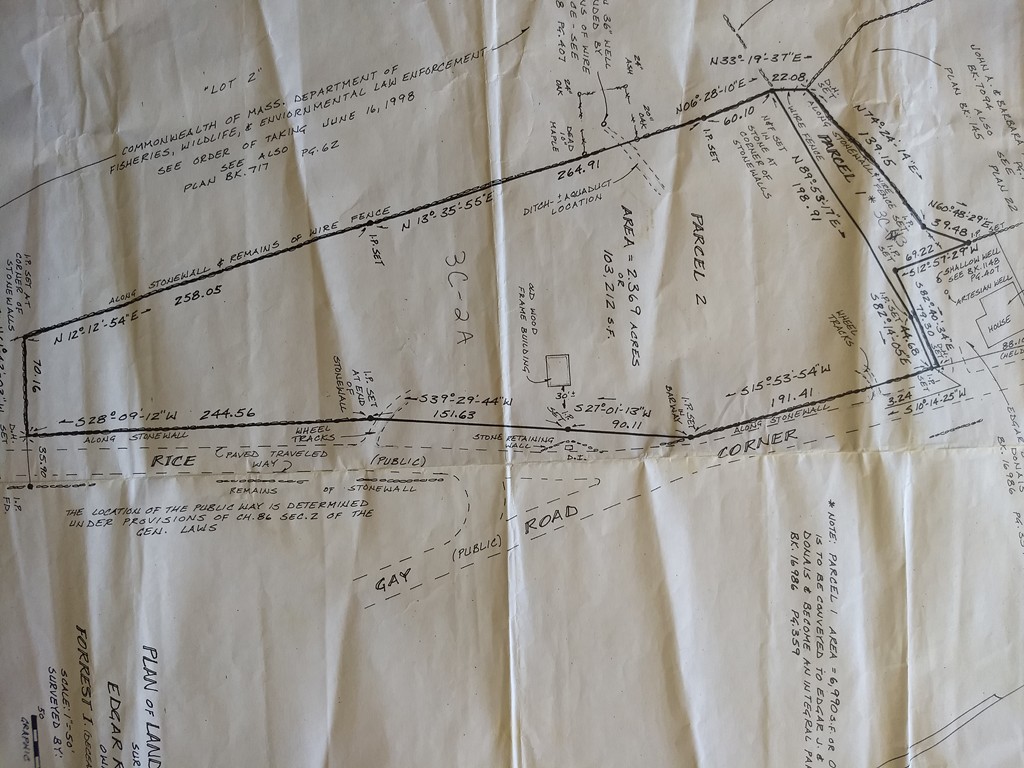 "LOT 2"
COMMONWEALTH OF MASS. DEPARTMENT OF
FISHERIES, WILDLIFE, & ENVIORNMENTAL LAW ENFORCEMENT
SEE ORDER OF TAKING JUNE 16, 1998
SEE ALSO PG. 62
PLAN BK. 717
36" WELL
OF WIRE
SEE
PG. 407
24"
ASH
20"
OAK
24"
OAK
DEAD
10"
MAPLE
N33°-19'-37"E
22.08
N06°-28'-10"E
60.10
I.P. SET
264.91
DITCH-AQUADUCT
LOCATION
N 13°-35'-55"E
I.P. SET
ALONG STONEWALL & REMAINS OF WIRE FENCE
258.05
N 12°-12'-54"E
I.P. SET AT
CORNER OF
STONEWALLS
70.16
D.H.
SET
35.90
I.P.
FD.
S28°-09'-12"W 244.56
ALONG STONEWALL
WHEEL
TRACKS
I.P. SET
AT END
OF
STONEWALL
S39°-29'-44"W
151.63
S27°-01'-13"W
90.11
STONE RETAINING
WALL
D.I.
I.P. SET
IN
BARWAY
S15°-53'-54"W
191.41
ALONG STONEWALL
OLD WOOD
FRAME BUILDING
3C-2A
AREA = 2.369 ACRES
OR
103,212 S.F.
PARCEL 2
PARCEL 1 *
WIRE FENCE
N 89°-53'-17"E
198.91
STONE AT
CORNER OF
STONEWALLS
N74°-24'-14"E
139.15
N60°-48'-29"E
39.48
69.22
S12°-57'-29"W
S82°-40'-34"E
79.30
44.68
S82°-14'-05"E
3.24
S10°-14'-25"W
WHEEL
TRACKS
SHALLOW WELL
SEE BK. 1148
PG. 407
ARTESIAN WELL
HOUSE
JOHN A. & BARBARA
BK. 7094 ALSO SEE PLAN 22
PLAN BK. 145
EDGAR
DONAIS
BK. 16986
RICE
(PAVED TRAVELED
WAY)
(PUBLIC)
CORNER
ROAD
REMAINS OF STONEWALL
THE LOCATION OF THE PUBLIC WAY IS DETERMINED
UNDER PROVISIONS OF CH. 86 SEC. 2 OF THE
GEN. LAWS
GAY
(PUBLIC)
* NOTE: PARCEL 1 AREA = 6,990 S.F. OR
IS TO BE CONVEYED TO EDGAR J. &
DONAIS & BECOME AN INTEGRAL
BK. 16986 PG. 359
PLAN OF LAND
EDGAR
FORREST I.
SCALE: 1"=50'
SURVEYED BY:
50
GRAPHIC